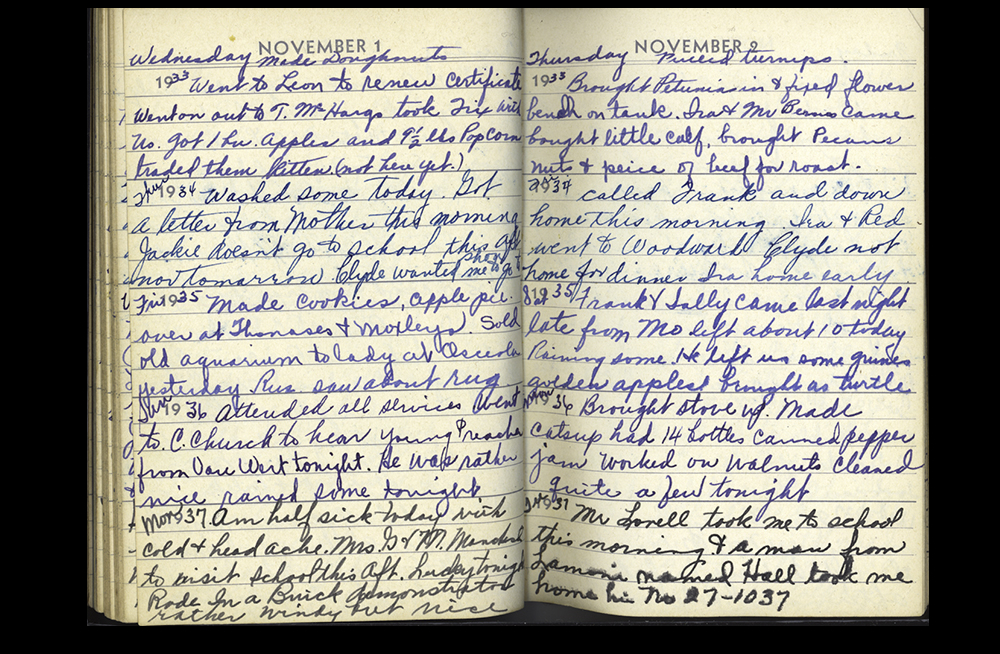 NOVEMBER 1
Wednesday Made Doughnuts
1933 Went to Leon to renew certificate
Went on out to T. McHargs took Trix with
us. Got 1 bu. apples and 9½ lbs Popcorn
traded them kitten. (not here yet.)
Thur 1934 Washed some today. Got
a letter from Mother this morning
Jackie doesn't go to school this aft
nor tomorrow. Clyde wanted me to go to
show
Fri 1935 Made cookies, apple pie.
over at Thomases & Moxleys. Sold
old aquarium to lady at Osceola
yesterday. Rus. saw about rug
Sun 1936 Attended all services Went
to C. Church to hear young Preacher
from Van Wert tonight. He was rather
nice rained some tonight
Mon 1937. Am half sick today with
cold & head ache. Mrs. G & M.
to visit school this Aft. Lucky tonight
Rode In a Buick demonstrator
rather windy but nice
NOVEMBER 2
Thursday Pulled turnips.
1933 Brought Petunias in & fixed flower
bench on tank. Ira & Mr Bemis came
bought little calf, brought Pecans
nuts & peice of beef for roast.
1934 called Frank and down
home this morning. Ira & Red
went to Woodward Clyde not
home for dinner Ira home early
Sat 1935 Frank & Sally came last night
late from Mo left about 10 today
Raining some. He left us some guines
golden apples & brought us turtle
1936 Brought stove up. Made
catsup had 14 bottles canned pepper
jam worked on walnuts cleaned
quite a few tonight
1937 Mr Lovell took me to school
this morning & a man from
Lamoni named Hall took me
home his No 27-1037